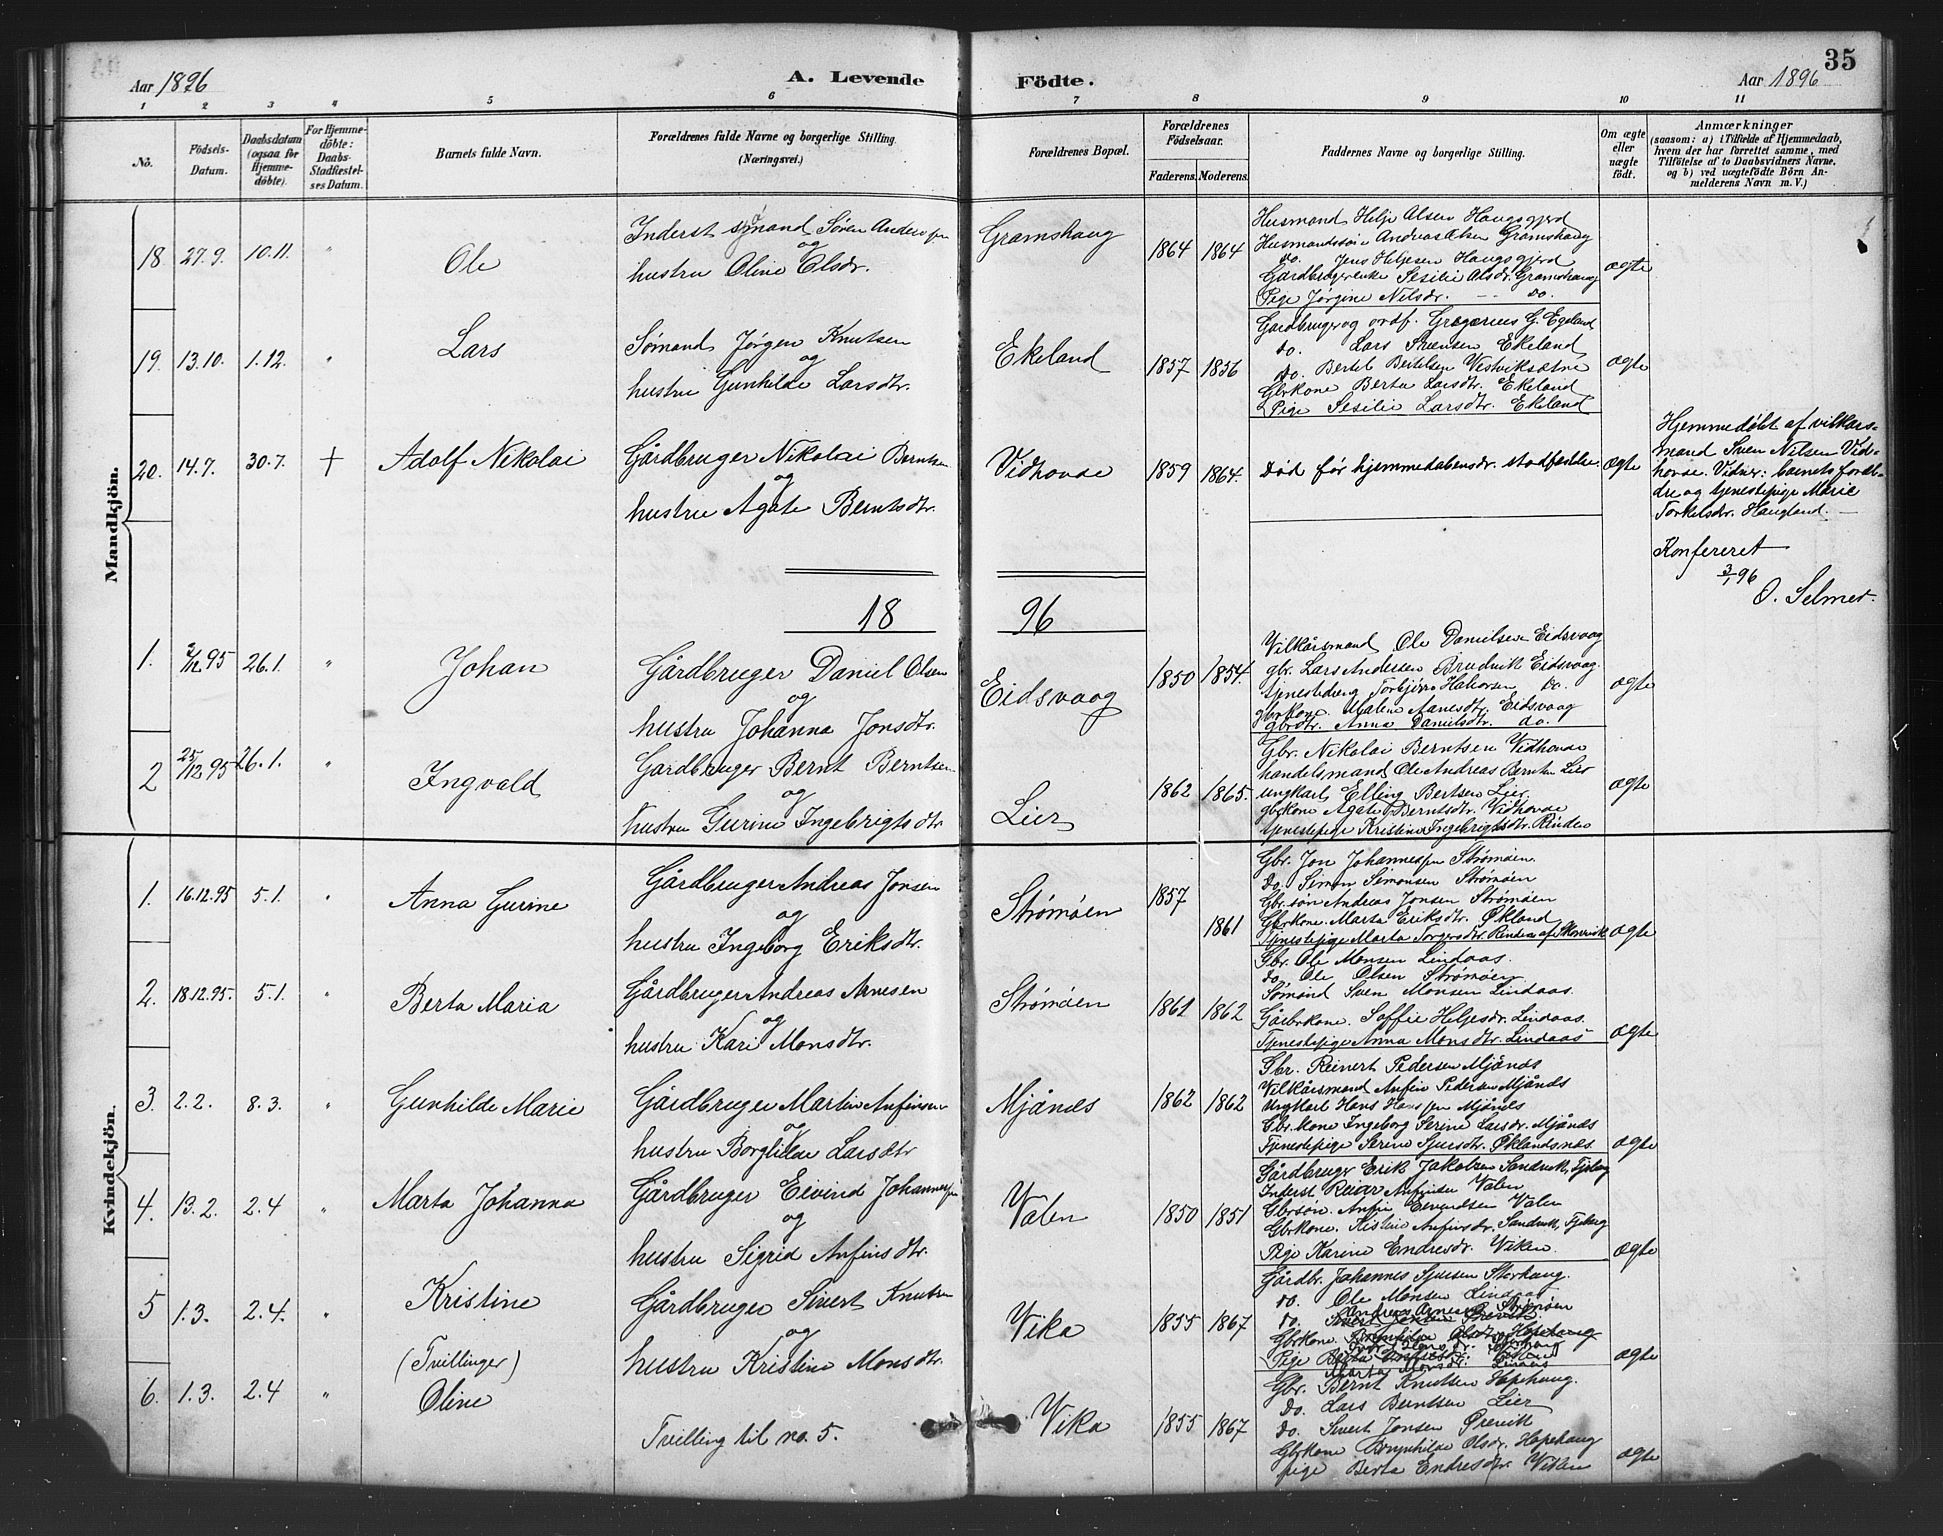 35
Aar 1896
A. Levende Födte.
Aar 1896
1 2 3 4 5 6 7 8 9 10 11
No.
Födsels-Datum.
Daabsdatum (ogsaa for Hjemme-döbte).
For Hjemme-döbte: Daabs-Stadfæstel-ses Datum.
Barnets fulde Navn.
Forældrenes fulde Navne og borgerlige Stilling.
(Næringsvei.)
Forældrenes Bopæl.
Forældrenes Födselsaar.
Faderens. Moderens.
Faddernes Navne og borgerlige Stilling.
Om ægte eller uægte födt.
Anmærkninger
(saasom: a) i Tilfælde af Hjemmedaab,
hvem der har forrettet samme, med
Tilföielse af to Daabsvidners Navne,
og b) ved uægtefödte Börn An-
melderens Navn m. V.)
Mandkjön.
18. 27.9. 10.11. " Ole
Inderst sømand Søren Anderssen
og
hustru Oline Olsdr.
Gramshaug 1864 1864
Husmand Helje Olsen Haugsgjerd
Husmandssøn Andreas Olsen Gramshaug
do. Jens Heljesen Haugsgjerd
Gardbrugerenke Sesilie Olsdr. Gramshaug
Pige Jørgine Nilsdr. do.
ægte
19. 13.10. 1.12. " Lars
Sømand Jørgen Knutsen
og
hustru Gunhilde Larsdtr.
Ekeland 1857 1856
Gardbruger og ordf. Gregorius G. Egeland
do. Lars Svensen Ekeland
do. Bertel Bertelsen Vestviksætne
Gbrkone Berta Larsdtr. Ekeland
Pige Sesilie Larsdtr. Ekeland
ægte
20. 14.7. 30.7. + Adolf Nikolai
Gårdbruger Nikolai Berntsen
og
hustru Agate Berntsdtr.
Vidhovde 1859 1864.
Død før hjemmedaabens stadfæstelse.
ægte
Hjemmedøbt af vilkaars-
mand Sven Nilsen Vid-
hovde. Vidner: barnets foræl-
dre og tjenestepige Marie
Torkelsdr. Haugland.
Konfereret
3/1 96
O. Selmer.
18 96
1. 3/12 95 26.1. " Johan
Gårdbruger Daniel Olsen
og
hustru Johanna Jonsdtr.
Eidsvaag 1850 1854.
Vilkårsmand Ole Danielsen Eidsvaag
gbr. Lars Andersen Brudvik Eidsvaag.
tjenestedreng Torbjørn Halvorsen do.
gbrkone. Malene Aanesdtr. Eidsvaag
gbrdtr. Anna Danielsdtr. do.
ægte
2 25/12 95 26.1. " Ingvald
Gardbruger Bernt Berntsen
og
hustru Gurine Ingebrigtsdtr.
Lier 1862 1865.
Gbr. Nikolai Berntsen Vidhovde
handelsmand Ole Andreas Berntsen Lier
ungkarl Elling Bertsen Lier.
gbrkone Agate Berntsdtr. Vidhovde
tjenestepige Kristine Ingebrigtsdtr. Rinden
ægte
Kvindekjön.
1. 16.12.95 5.1. " Anna Gurine
Gårdbruger Andreas Jonsen
og
hustru Ingeborg Eriksdtr.
Strømøen 1857 1861
Gbr. Jon Johannessen Strømøen.
do. Simon Simonsen Strømøen
Gbr.søn Andreas Jonsen Strømøen
Gbrkone. Marta Eriksdtr. Økland
Tjenestepige Marta Torgersdtr. Rinden af Skonevik
ægte
2. 18.12.95. 5.1. " Berta Maria
Gårdbruger Andreas Arnesen
og
hustru Kari Monsdtr.
Strømøen 1861 1862
Gbr. Ole Monsen Lindaas.
do. Ole Olsen Strømøen
Sømand Sven Monsen Lindaas.
Gårbrkone. Soffie Heljesdr. Lindaas.
Tjenestepige Anna Monsdtr. Lindaas
ægte
3. 2.2. 8.3. " Gunhilde Marie
Gårdbruger Martin Anfinsen
og
hustru Borghilde Larsdtr
Mjånes 1862 1862
Gbr. Reinert Pedersen Mjånes
Vilkårsmand Anfin Pedersen Mjånes
Ungkarl Hans Hanssen Mjånes
Gbr. kone Ingeborg Serine Larsdr. Mjånes
Tjenestepige Serine Sjursdtr. Øklandsnes.
ægte
4. 13.2. 2.4 " Marta Johanna
Gårdbruger Eivind Johannessen
og
hustru Sigrid Anfinsdtr.
Valen 1850 1851
Gårdbruger Erik Jakobsen Sandvik, Fjelberg
Inderst Reiar Anfinsen Valen
Gbrsøn. Anfin Eivendsen Valen
Gbrkone. Kistine Anfinsdr. Sandvik, Fjelberg
Pige Karine Endresdr. Viken.
ægte
5 1.3. 2.4. " Kristine
(Tvillinger)
Gårdbruger Sivert Knutsen
og
hustru Kristine Monsdtr.
Vika 1855 1867
Gårdbr. Johannes Sjursen Storhaug.
do. Ole Monsen Lindaas
do. Andreas Arnesen Strømøen
Gbrkone.
Pige
ægte
6. 1.3. 2.4 " Oline
Tvilling til no. 5.
Vika 1855 1867
Gbr. Bernt Knutsen Hopehaug.
do. Lars Berntsen Lier
do. Sivert Jonsen Ørevik
Gbrkone Brynhilde Olsdr. Hopehaug
pige Berta Endresdtr Viken
ægte